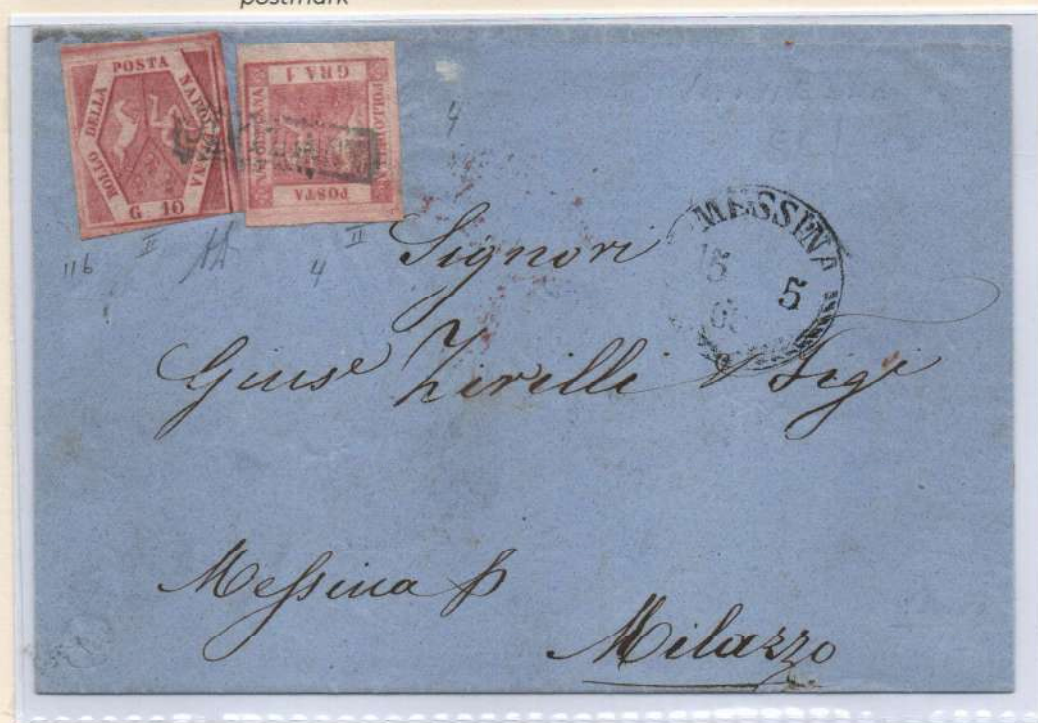 postmark
BOLLO DELLA POSTA NAPOLETANA
G. 10
GRA 1
BOLLO DELLA
POSTA
NAPOLETANA
4
11b
II
4
II
MESSINA
15
5
Signori
Gius^e Zirilli & Figi
Messina p
Milazzo